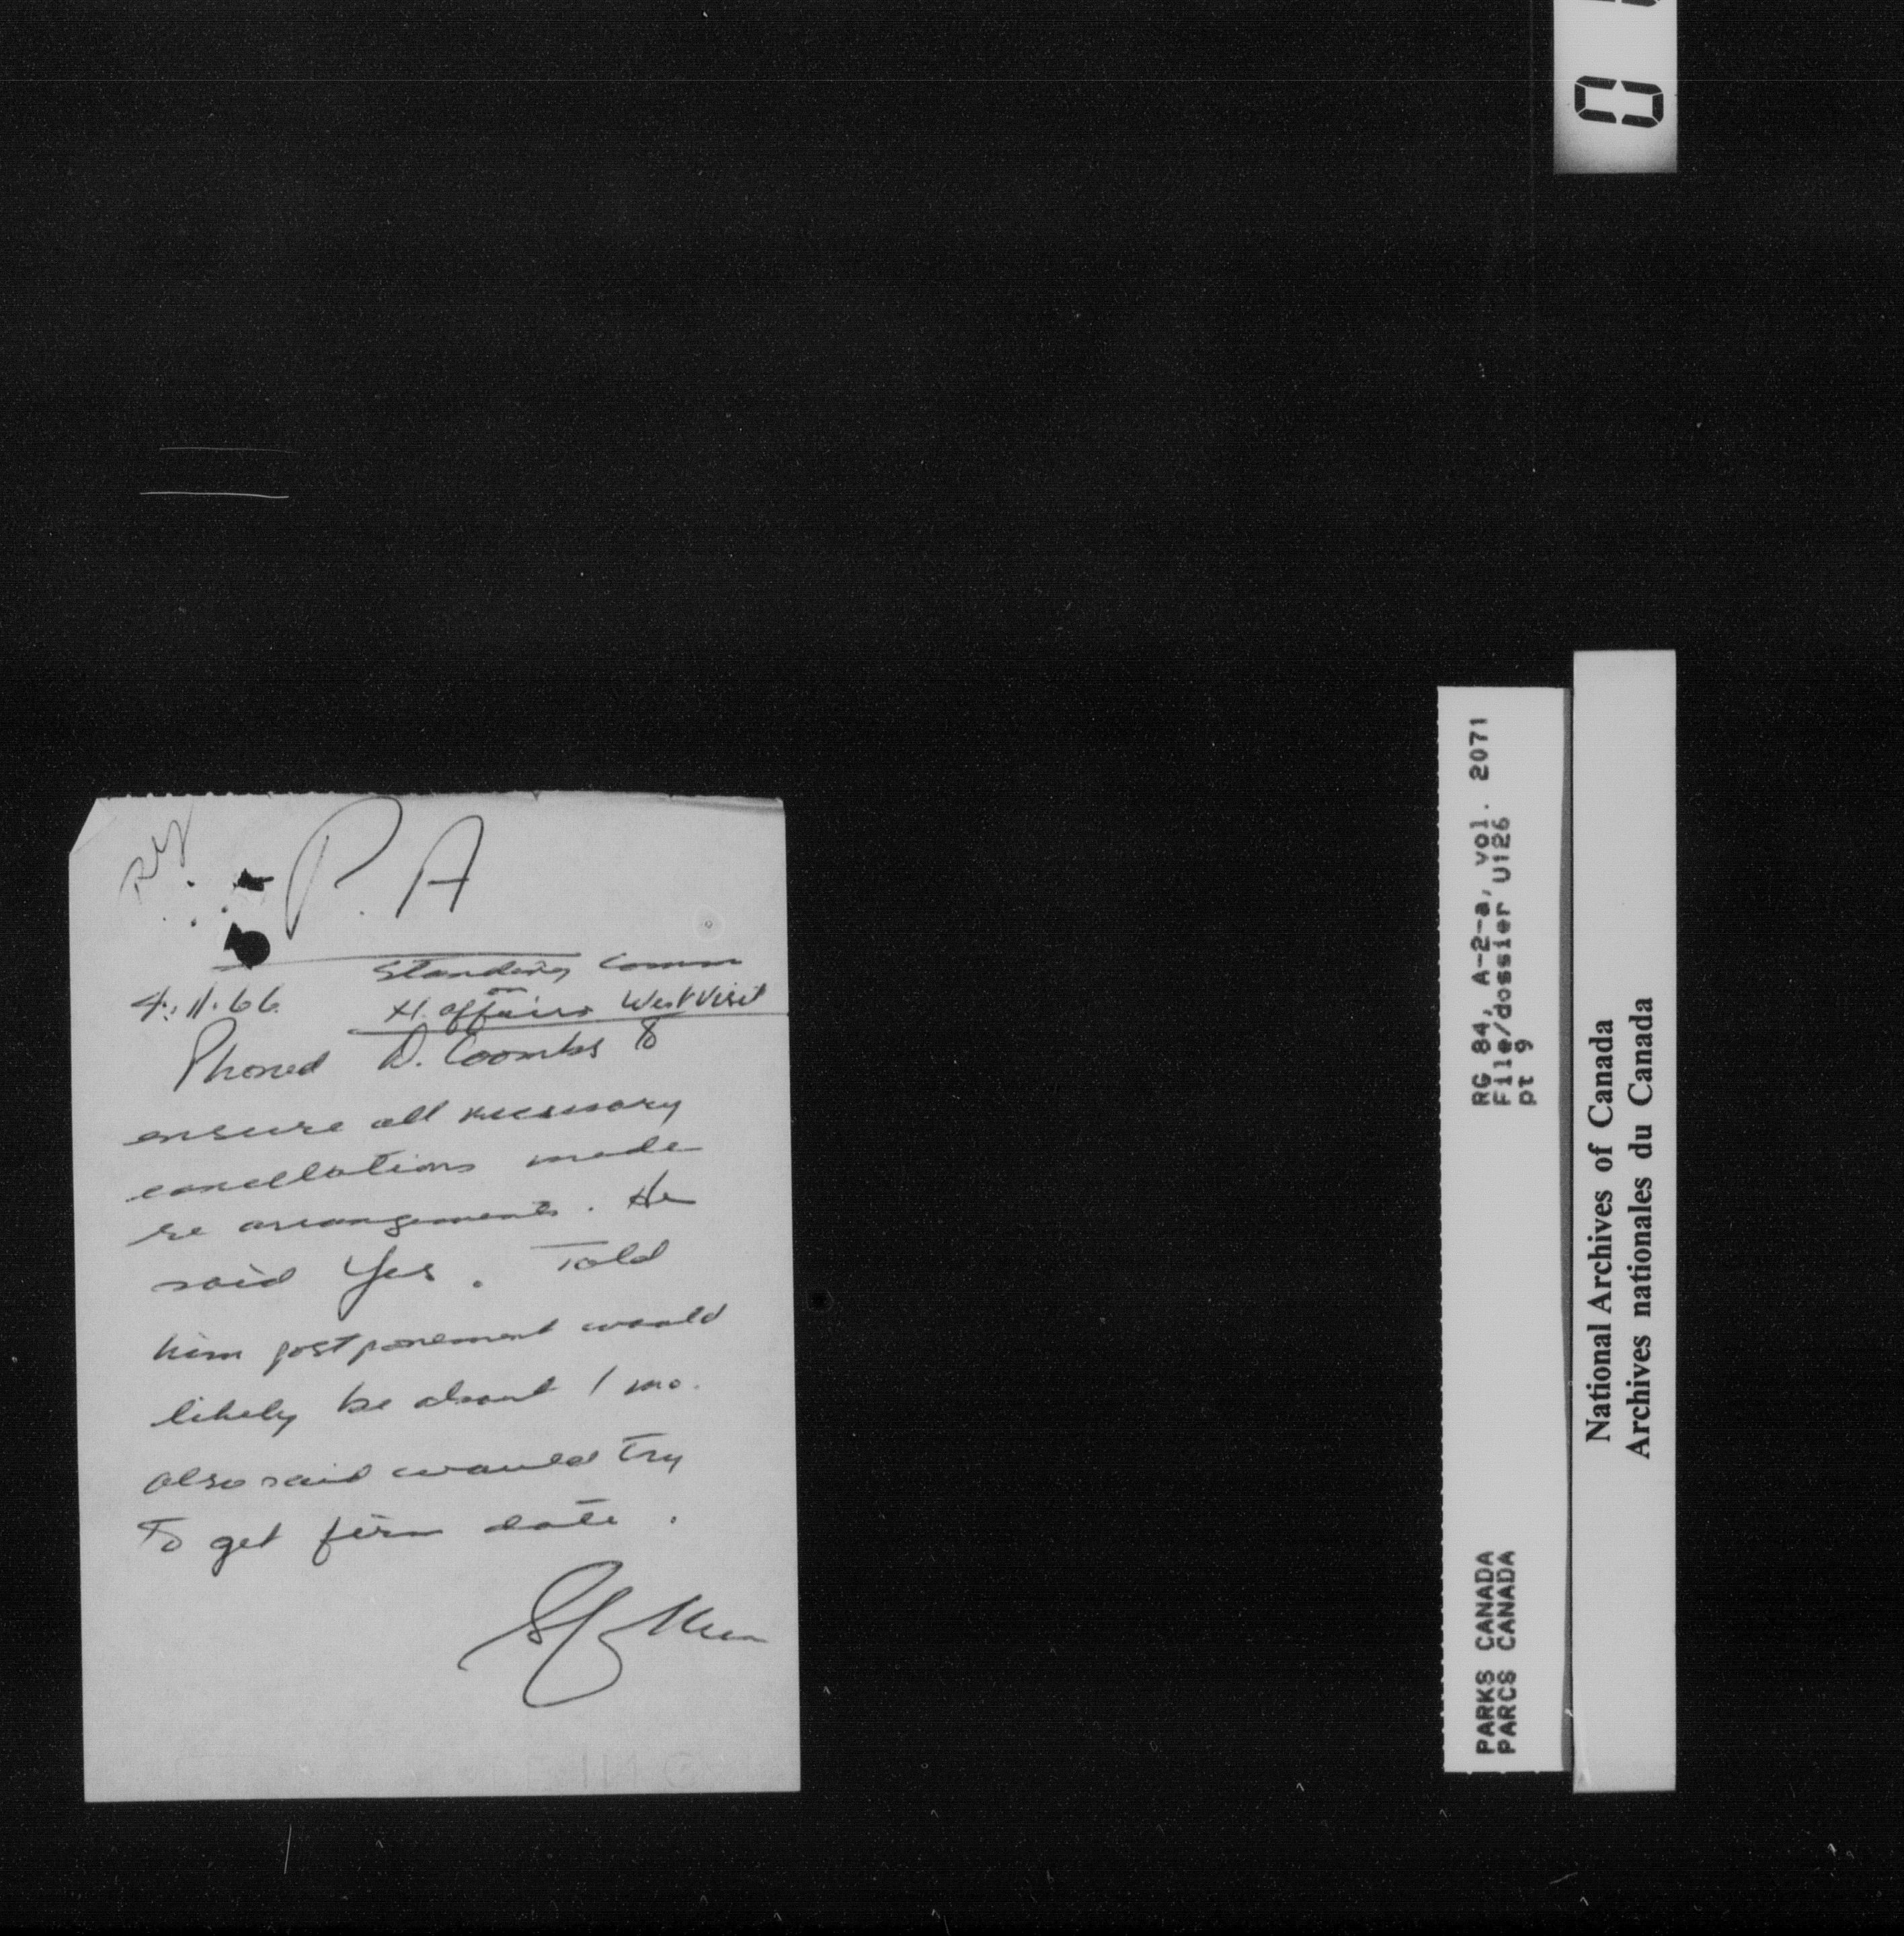 P.A
Standing Comm
on
4.11.66. N. Affairs West Visit
Phoned D. Coombs to
ensure all necessary
cancellations made
re arrangements. He
said Yes. Told
him postponement would
likely be about 1 mo.
also said would try
to get firm date.
RG 84, A-2-a, vol. 2071
File/dossier U126
pt 9
PARKS CANADA
PARCS CANADA
National Archives of Canada
Archives nationales du Canada
0